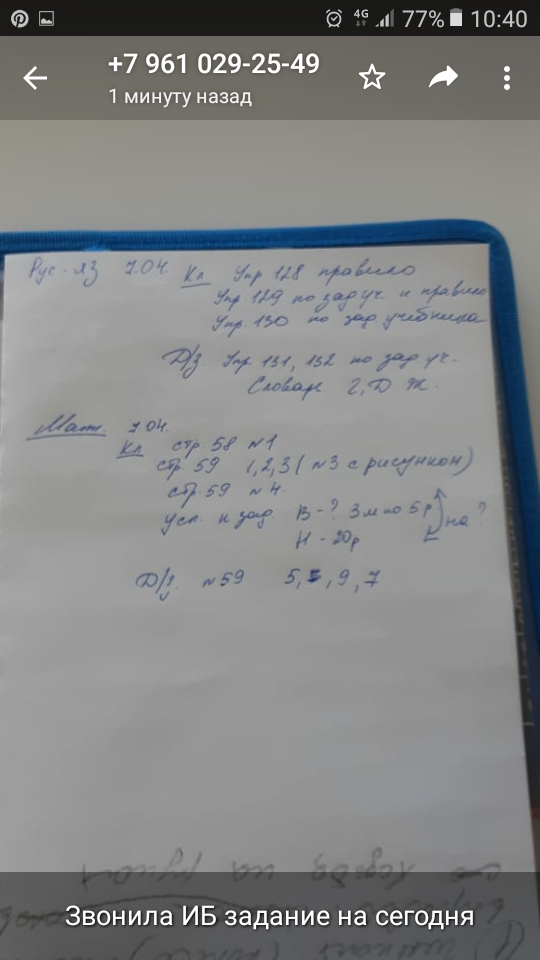 4G 77% 10:40
+7 961 029-25-49
1 минуту назад
Рус-яз 7.04. Кл Упр 128 правило
Упр 129 по зад уч. и правило
Упр. 130 по зад учебника
Д/з Упр. 131, 132 по зад уч.
Словарь Г, Д Ж.
Мат. 7.04.
Кл стр 58 №1
стр. 59 1,2,3 (№3 с рисунком)
стр. 59 №4.
усл. к зад. В-? 3м по 5р на?
Н-20р
Д/з. №59 5, , 9, 7
на руках
Звонила ИБ задание на сегодня